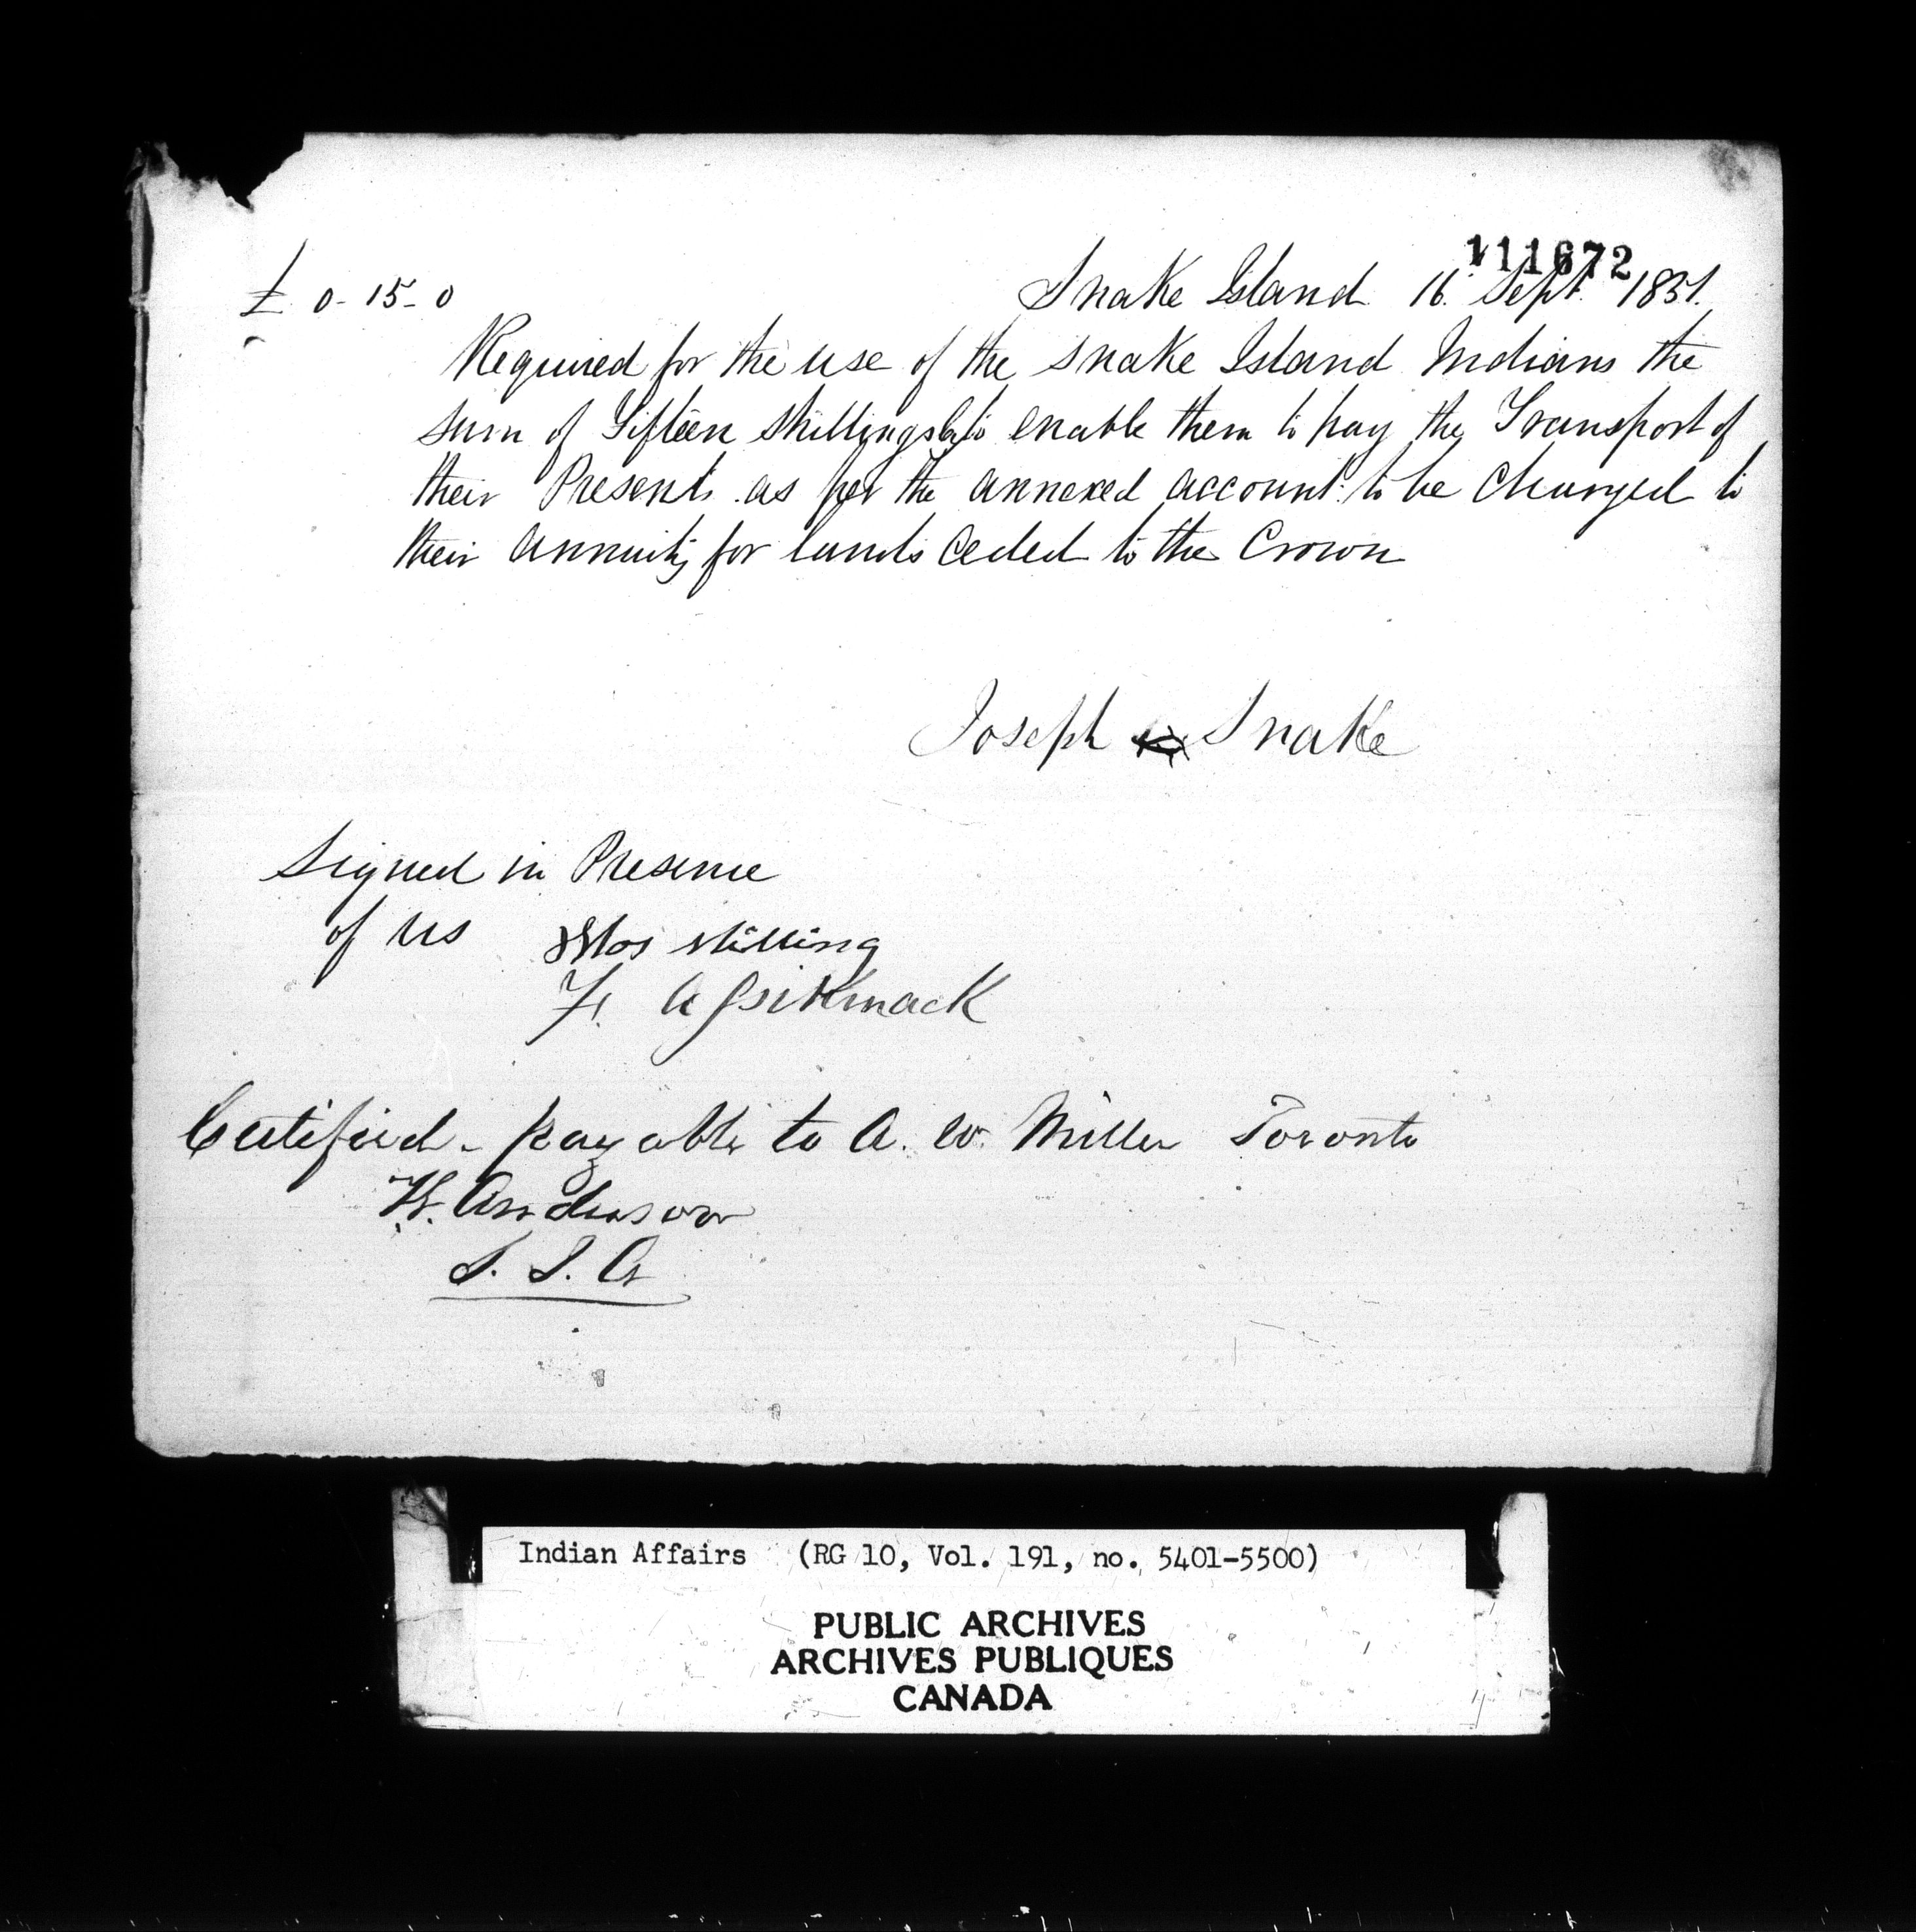 111672
£ 0-15-0 Snake Island 16. Sept. 1851.
Required for the use of the Snake Island Indians the
sum of Fifteen Shillings to enable them to pay the Transport of
their Presents as per the annexed account to be Charged to
their Annuity for lands Ceded to the Crown
Joseph Snake
Signed in Presence
of us
F. A
Certified - payable to A. W. Miller Toronto
Anderson
S. I. A
Indian Affairs (RG 10, Vol. 191, no. 5401-5500)
PUBLIC ARCHIVES
ARCHIVES PUBLIQUES
CANADA